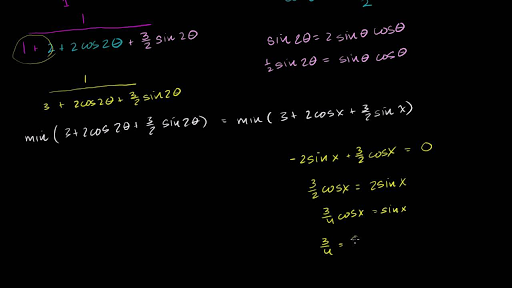 1
1
1 + 2 + 2cos2θ + 3/2 sin2θ
2
sin2θ = 2 sinθ cosθ
1/2 sin2θ = sinθ cosθ
1
3 + 2cos2θ + 3/2 sin2θ
min( 3 + 2cos2θ + 3/2 sin2θ ) = min( 3 + 2cosx + 3/2 sinx )
-2sinx + 3/2 cosx = 0
3/2 cosx = 2sinx
3/4 cosx = sinx
3/4 =